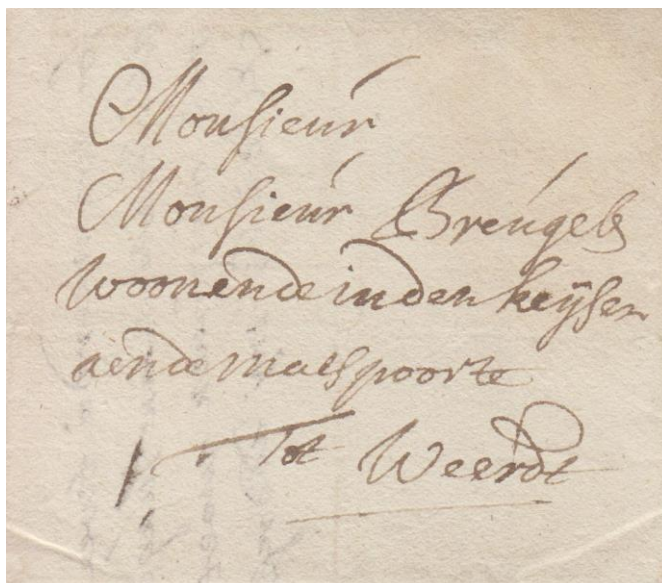 Monsieur
Monsieur Breugels
woonende in den keijser
aende maespoorte
tot Weerdt